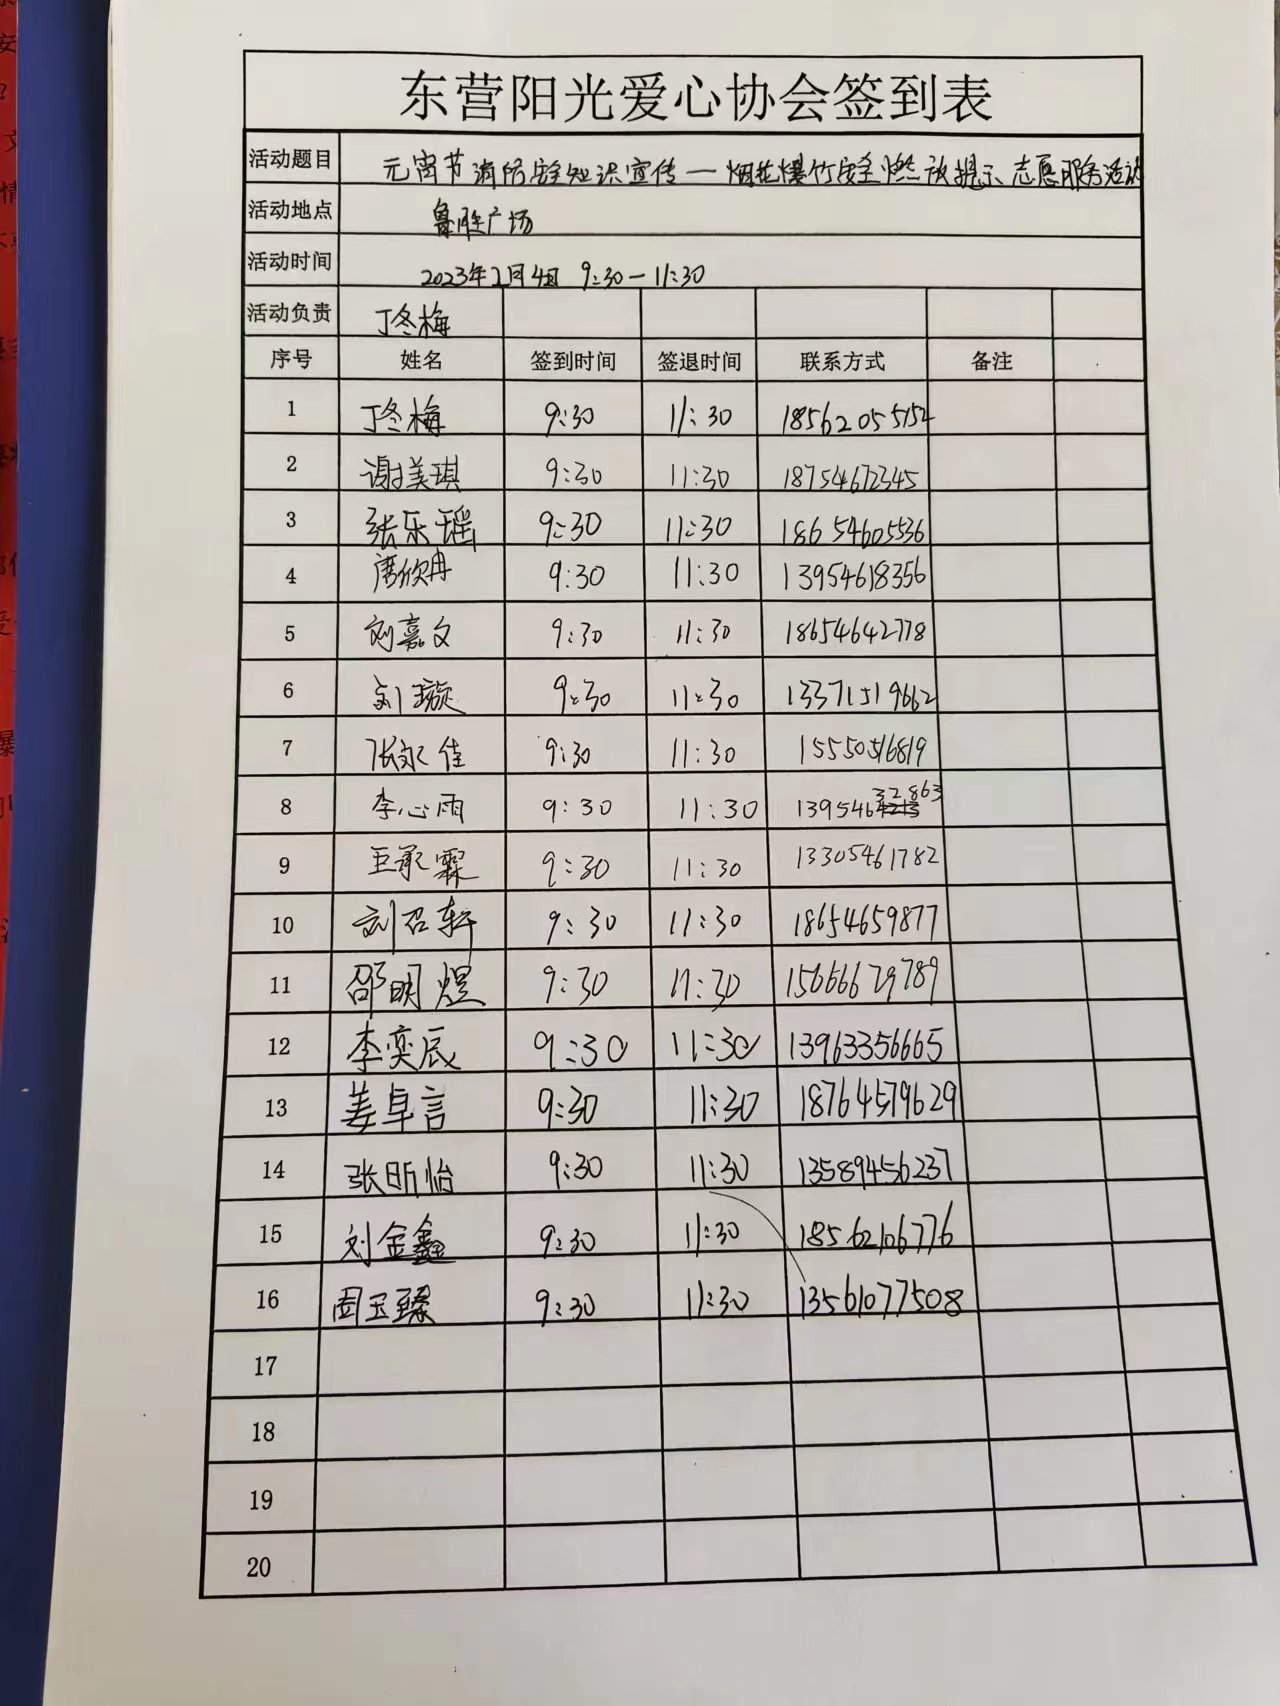 东营阳光爱心协会签到表
活动题目 元宵节消防安全知识宣传—烟花爆竹安全燃放提示志愿服务活动
活动地点 鲁胜广场
活动时间 2023年2月4日 9:30—11:30
活动负责 丁冬梅
序号 姓名 签到时间 签退时间 联系方式 备注
1 丁冬梅 9:30 11:30 18562055152
2 谢美琪 9:30 11:30 18754672345
3 张乐瑶 9:30 11:30 18654605536
4 唐欣冉 9:30 11:30 13954618356
5 刘嘉文 9:30 11:30 18654642778
6 刘璇 9:30 11:30 13371519662
7 张家佳 9:30 11:30 15550516819
8 李心雨 9:30 11:30 13954632863
9 王承霖 9:30 11:30 13305461782
10 刘召轩 9:30 11:30 18654659877
11 邵明煜 9:30 11:30 15666629789
12 李奕辰 9:30 11:30 13963356665
13 姜卓言 9:30 11:30 18764579629
14 张昕怡 9:30 11:30 13589456237
15 刘金鑫 9:30 11:30 18562106776
16 周玉臻 9:30 11:30 13561077508
17
18
19
20